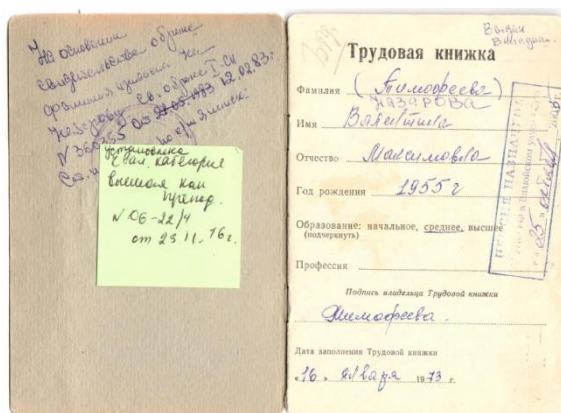 На основании
свидетельства о браке
фамилия изменена на
Назарову св. о браке I-СИ
N 360355 от 12.02.83.
установлена
квал. категория
высшая как
препод.
N 06-22/4
от 23 11. 16 г.
Трудовая книжка
Фамилия (Тимофеева)
НАЗАРОВА
Имя Валентина
Отчество Максимовна
Год рождения 1955 г
Образование: начальное, среднее, высшее
(подчеркнуть)
Профессия
Подпись владельца Трудовой книжки
Тимофеева.
Дата заполнения Трудовой книжки
"16" января 1973 г.
ПЕНСИЯ НАЗНАЧЕНА